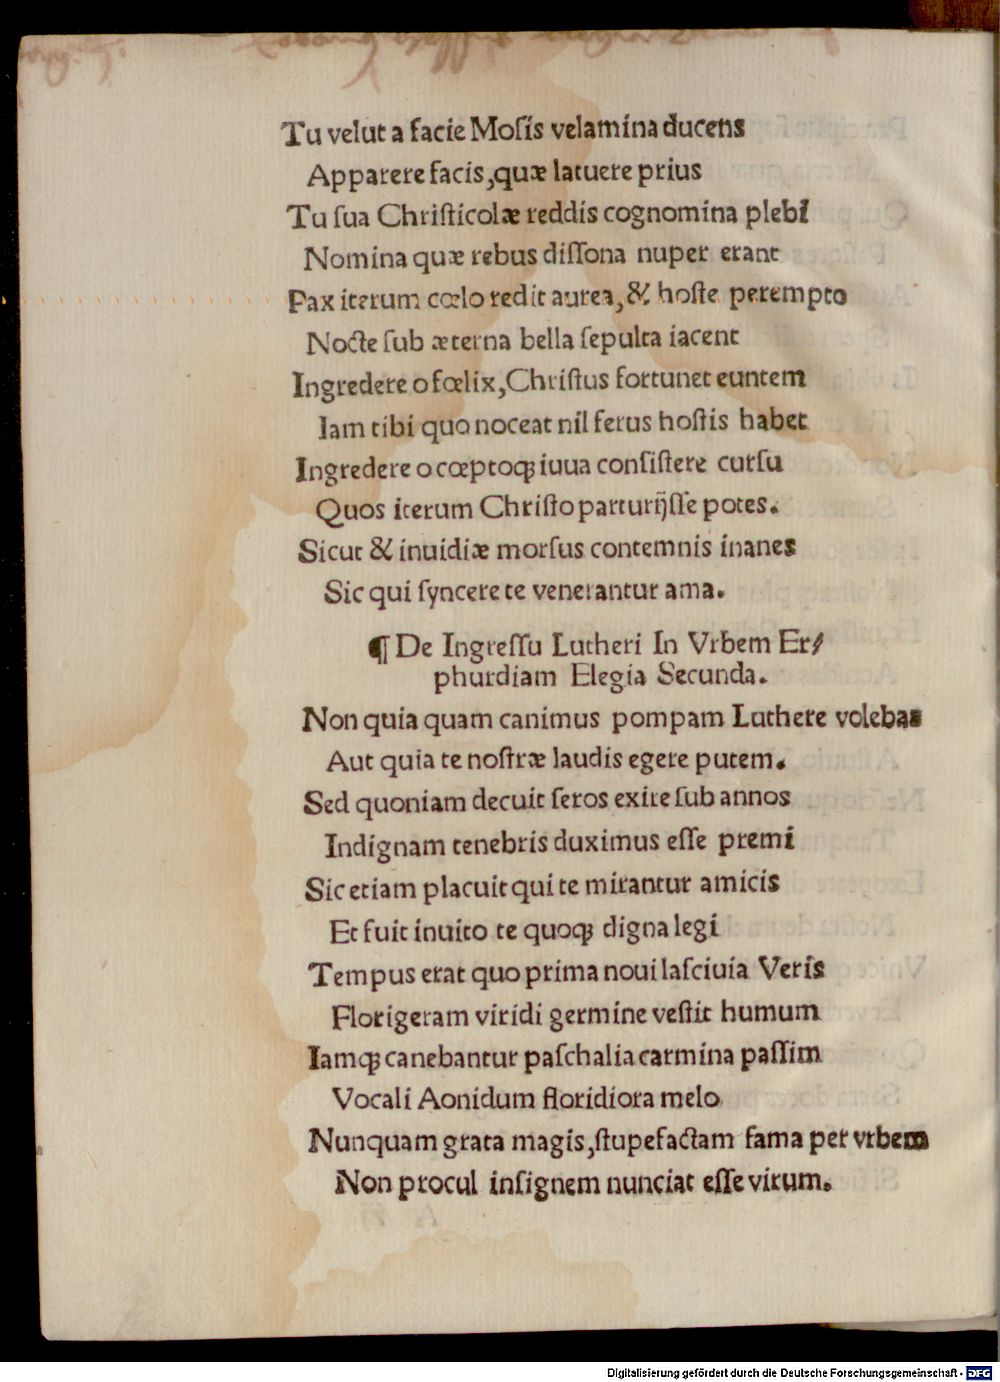 Tu velut a facie Moſis velamina ducens
Apparere facis,quæ latuere prius
Tu ſua Chriſticolæ reddis cognomina plebi
Nomina quæ rebus diſſona nuper erant
Pax iterum cœlo redit aurea,& hoſte perempto
Nocte ſub æterna bella ſepulta iacent
Ingredere o fœlix,Chriſtus fortunet euntem
Iam tibi quo noceat nil ferus hoſtis habet
Ingredere o cœptoqꝫ iuua conſiſtere curſu
Quos iterum Chriſto parturijſſe potes.
Sicut & inuidiæ morſus contemnis inanes
Sic qui ſyncere te venerantur ama.
¶ De Ingreſſu Lutheri In Vrbem Er⸗
phurdiam Elegia Secunda.
Non quia quam canimus pompam Luthere volebas
Aut quia te noſtræ laudis egere putem.
Sed quoniam decuit ſeros exire ſub annos
Indignam tenebris duximus eſſe premi
Sic etiam placuit qui te mirantur amicis
Et fuit inuito te quoqꝫ digna legi
Tempus erat quo prima noui laſciuia Veris
Florigeram viridi germine veſtit humum
Iamqꝫ canebantur paſchalia carmina paſſim
Vocali Aonidum floridiora melo
Nunquam grata magis,ſtupefactam fama per vrbem
Non procul inſignem nunciat eſſe virum.
Digitalisierung gefördert durch die Deutsche Forschungsgemeinschaft - DFG